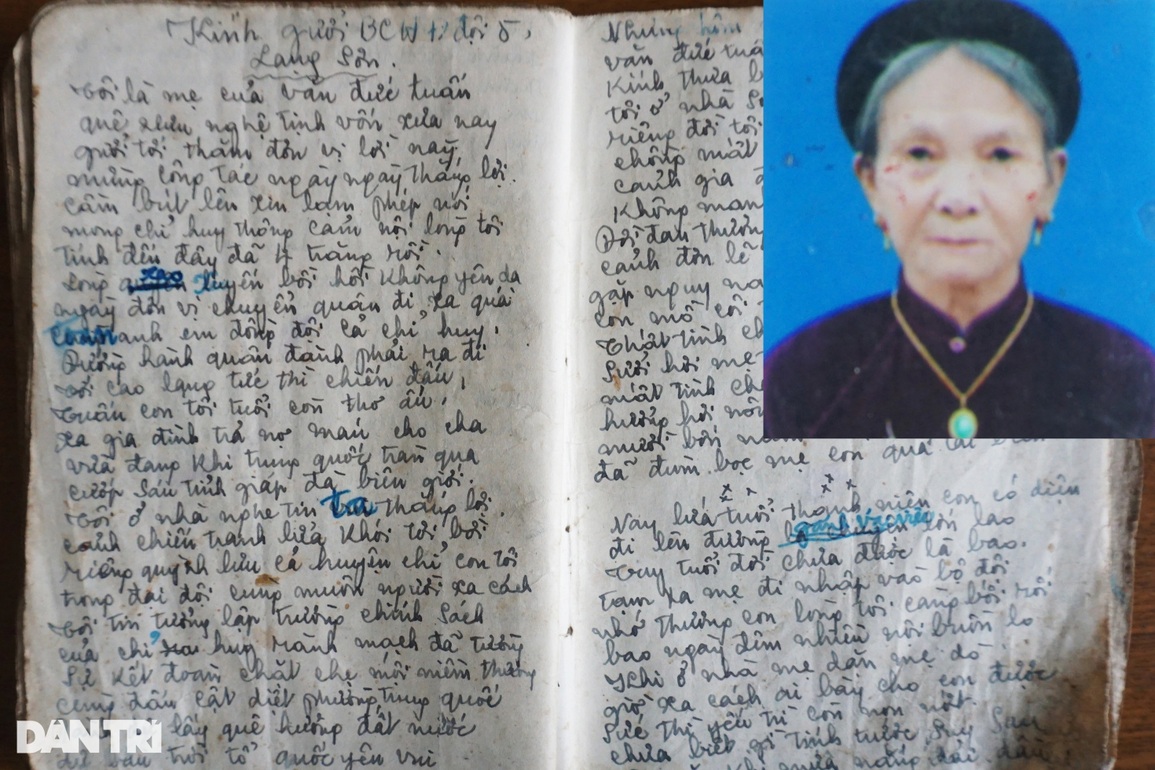 Kính gưởi BCH đại đội 5,
Lạng Sơn.
Tôi là mẹ của văn đức tuấn
quê xứu nghệ tinh vốn xưa nay
gưởi tới thăm đơn vị lời nay
mừng công tác ngày ngày thắng lợi.
cầm bút lên xin làm phép nói
mong chỉ huy thông cảm nội lòng tôi
tính đến đây đã 4 trăng rồi.
Lòng xao xuyến bồi hồi không yên dạ
ngày đơn vị chuyển quân đi xa quá
anh em đồng đội cả chỉ huy,
Đường hành quân đành phải ra đi
tới cao lạng tức thì chiến đấu,
Tuấn con tôi tuổi còn thơ ấu,
xa gia đình trả nợ máu cho cha
vừa đang khi trung quốc tràn qua
cướp sáu tỉnh giáp đà biên giới.
Tôi ở nhà nghe tin ta thắng lợi,
cảnh chiến tranh lửa khói tới bời
riêng quỳnh lưu cả huyện chỉ con tôi
trong đại đội cung muôn người xa cách
Tôi tin tưởng lập trường chính sách
của chỉ huy rành mạch đã tường
sự kết đoàn chặt chẹ mối niềm thương
cùng đấu cật diệt phường trung quốc
lấy quê hướng đất nước
trời tổ quốc yên vui
Nhưng hôm
văn đức tuấ
Kính thưa b
tôi ở nhà
riêng đời tôi
chồng mất
cảnh gia
Không man
Đời đan thương
cảnh đơn lẽ
gặp nguy na
con mồ côi
thất tình ch
Sưởi hơi mẹ
mất tình ch
hướng hơi
mười bốn năm
đã đum bọc mẹ con qua
Nay lứa tuổi thanh niên con có diện
đi lên đường gánh vác việc lớn lao
Tuy tuổi đời chưa được là bao.
tạm xa mẹ đi nhập vào bộ đội
nhớ thương con lòng tôi càng bối rối
bao ngày đêm nhiều nỗi buồn lo
Khi ở nhà mẹ dặn mẹ dò
giờ xa cách ai bày cho con được
sức thì yếu trí còn non nớt
chưa biết gì tính tước suy sau
DÂN TRÍ